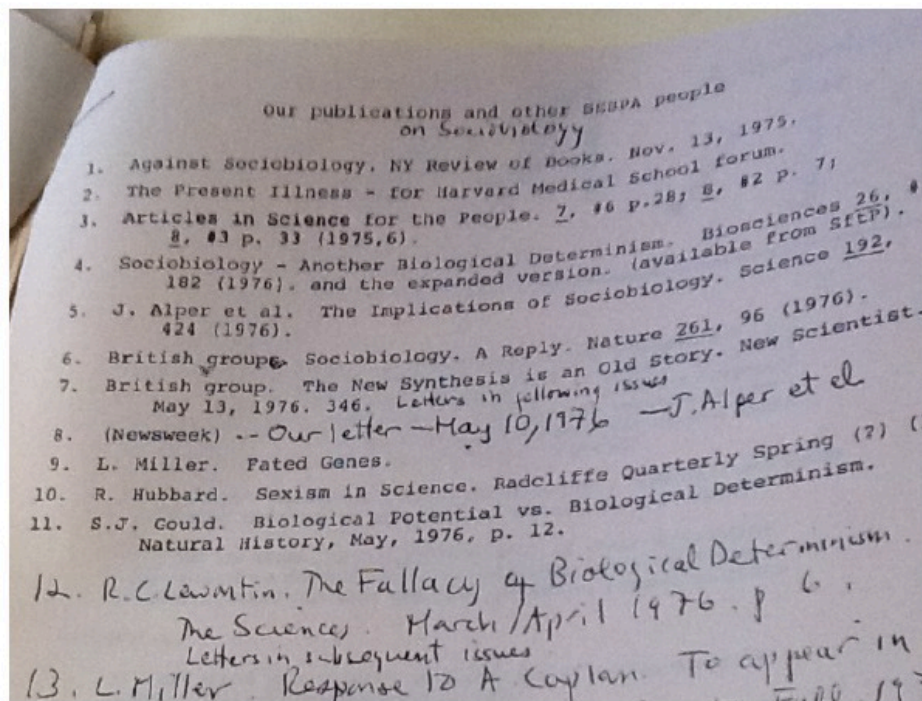 Our publications and other SESPA people
on Sociobiology
1. Against Sociobiology. NY Review of Books. Nov. 13, 1975.
2. The Present Illness - for Harvard Medical School forum.
3. Articles in Science for the People. 7, #6 p.28; 8, #2 p. 7;
8, #3 p. 33 (1975,6).
4. Sociobiology - Another Biological Determinism. Biosciences 26, #
182 (1976). and the expanded version. (available from SftP).
5. J. Alper et al. The Implications of Sociobiology. Science 192,
424 (1976).
6. British group. Sociobiology. A Reply. Nature 261, 96 (1976).
7. British group. The New Synthesis is an Old Story. New Scientist.
May 13, 1976. 346. Letters in following issues
8. (Newsweek) -- Our letter - May 10, 1976 - J. Alper et al
9. L. Miller. Fated Genes.
10. R. Hubbard. Sexism in Science. Radcliffe Quarterly Spring (?) (
11. S.J. Gould. Biological Potential vs. Biological Determinism.
Natural History, May, 1976, p. 12.
12. R.C. Lewontin. The Fallacy of Biological Determinism.
The Sciences. March/April 1976. p 6.
Letters in subsequent issues
13. L. Miller. Response to A Caplan. To appear in